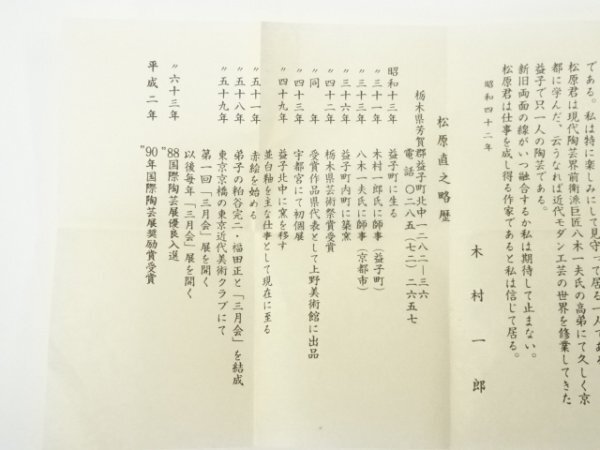 である。私は特に楽しみにして見守って居る一人である。
松原君は現代陶芸界前衛派巨匠八木一夫氏の高弟にて久しく京
都に学んだ、云うなれば近代モダン工芸の世界を修業してきた
益子で只一人の陶芸である。
新旧両面の線がいつ融合するか私は期待して止まない。
松原君は仕事を成し得る作家であると私は信じて居る。
昭和四十二年
木村一郎
松原直之略歴
栃木県芳賀郡益子町北中一二八二―三六
電話〇二八五(七二)二六五七
昭和十三年 益子町に生る
〃三十一年 木村一郎氏に師事(益子町)
〃三十三年 八木一夫氏に師事(京都市)
〃三十六年 益子町内町に築窯
〃四十二年 栃木県芸術祭賞受賞
〃同年 受賞作品県代表として上野美術館に出品
〃四十三年 宇都宮にて初個展
〃四十九年 益子北中に窯を移す
並白釉を主な仕事として現在に至る
〃五十一年 赤絵を始める
〃五十八年 弟子の粕谷完二・福田正と「三月会」を結成
〃五十九年 東京京橋の東京近代美術クラブにて
第一回「三月会」展を開く
以後毎年「三月会」展を開く
〃六十三年 "88国際陶芸展優良入選
平成二年 "90年国際陶芸展奨励賞受賞